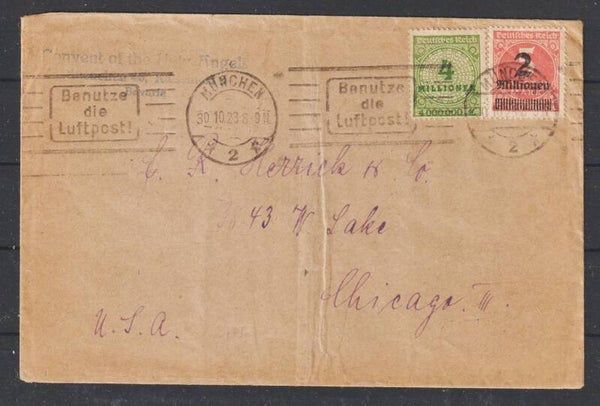 Convent of the Holy Angels
Bavaria
Benutze
die
Luftpost!
MÜNCHEN
30.10.23.8-9N
2
Benutze
die
Luftpost!
Deutsches Reich
4
MILLIONEN
4000000
Deutsches Reich
2
Millionen
MÜNCHEN
2
C. R. Herrick & Co.
3843 W. Lake
Chicago. Ill.
U.S.A.